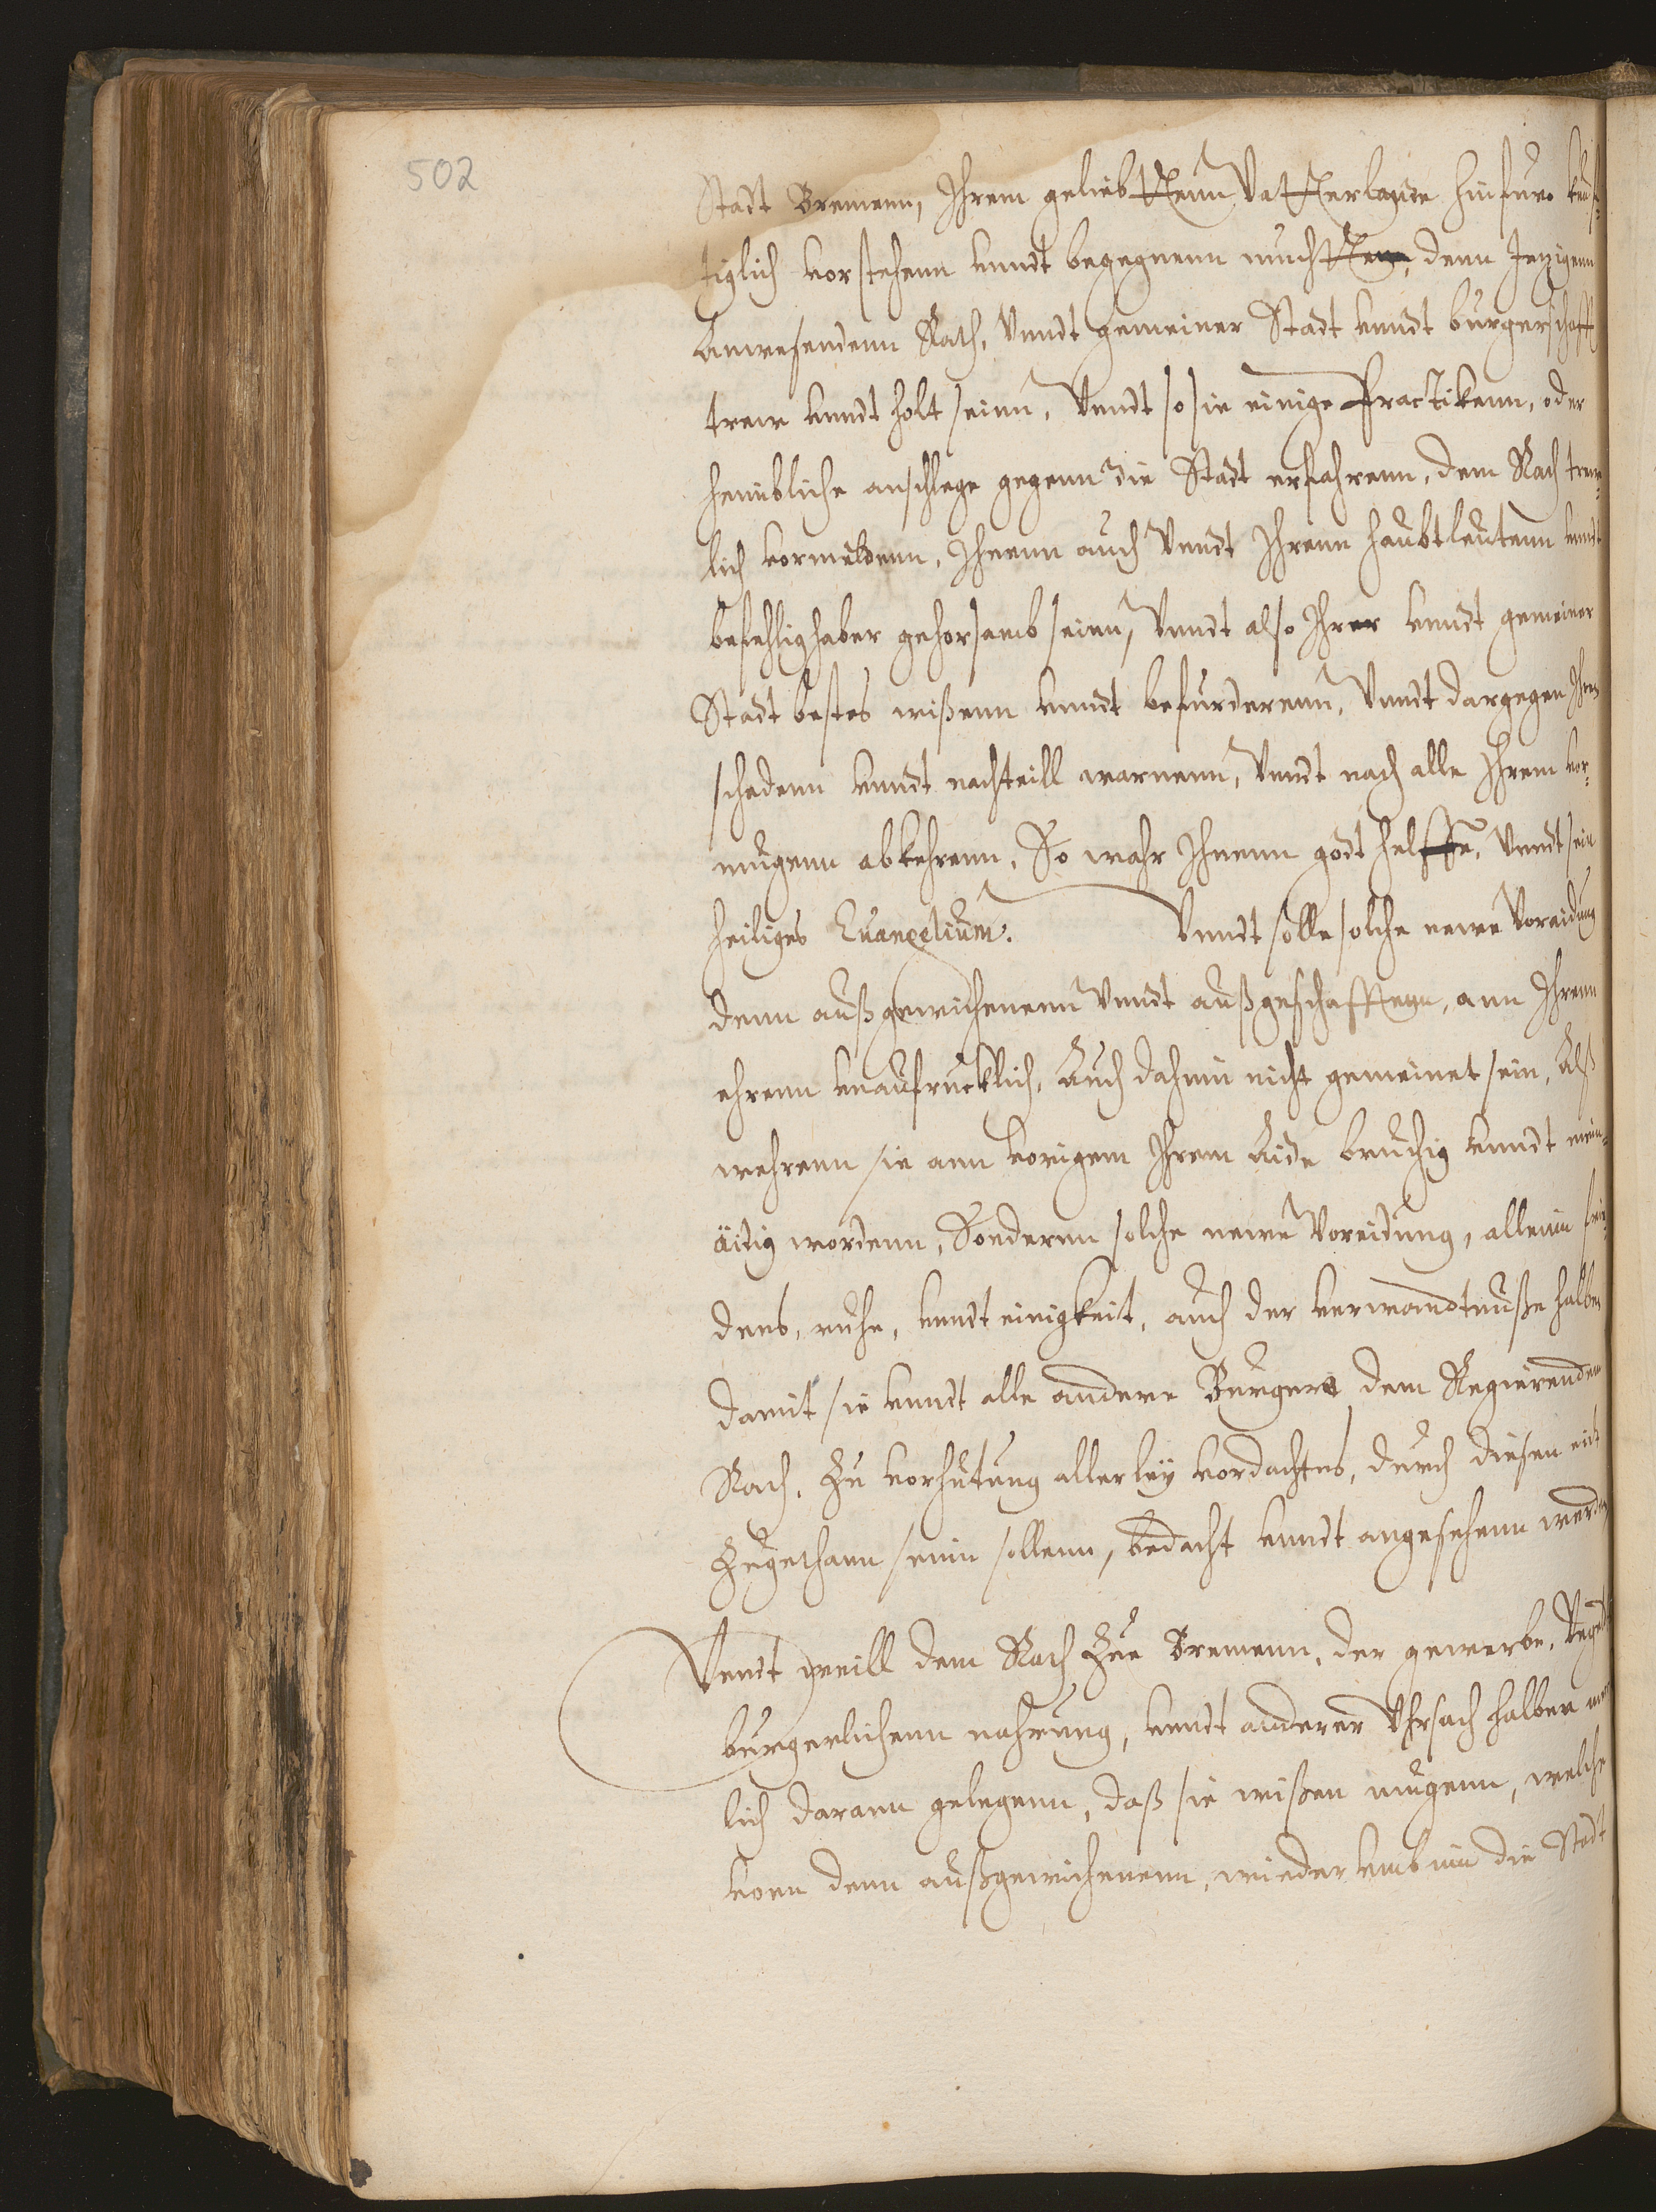 502
Stadt Bremenn, Ihrem geliebttenn Vatterlande hinfuro kunf¬
tiglich vorstehenn vnndt begegnenn muchttenn, denn Jezigenn
Anwesendenn Rath, Vnndt gemeiner Stadt vnndt burgerschafft
trew vnndt holt seinn, Vnndt so sie einige Practikenn, oder
heimbliche anschlege gegenn die Stadt erfahrenn, dem Rath trew¬
lich vormeldenn, Ihnenn auch Vnndt Ihrenn haubtleutenn vnndt
befehlighaber gehorsamb seinn, Vnndt also Ihrer vnndt gemeiner
Stadt bestes wißenn vnndt befurderenn, Vnndt dargegen Ihren
schadenn vnndt nachteill warnenn, Vnndt nach alle Ihrem vor¬
mugenn abkehrenn, So wahr Ihnenn godt helffe, Vnndt sein
heiliges Euangelium. Vnndt solle solche newe Voraidung
denn außgewichenenn Vnndt außgeschafftenn, ann Ihrenn
ehrenn vnaufrucklich, Auch dahinn nicht gemeinet sein, Alß
wehrenn sie ann vorigem Ihrem Aide bruchig vnndt mein¬
äidig wordenn, Sonderenn solche newe Voreidung, allein frie¬
dens, ruhe, vnndt einigkeit, auch der verwandtnuße halben
damit sie vnndt alle andere Burgere dem Regierenden
Rath, Zu vorhutung allerley vordachtes, durch diesen eidt
Zugethann seinn sollenn, bedacht vnndt angesehenn werden
Vnndt weill dem Rath Zue Bremenn, der gewerbe,
burgerlichenn nahrung, vnndt anderer Vhrsach halben
lich darann gelegenn, daß sie wißen mugenn, welche
vonn denn außgewichenenn, wiederumb inn die Stadt